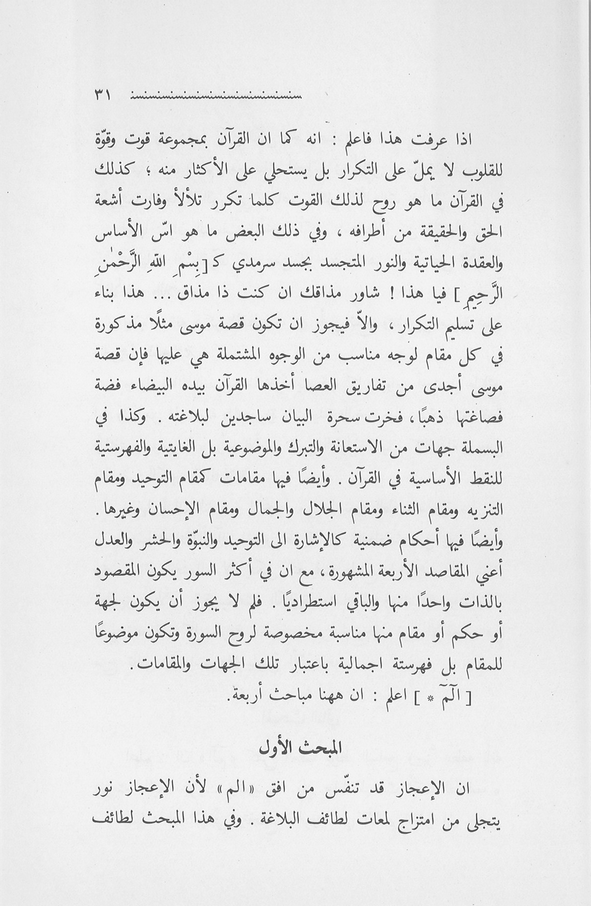 ٣١
اذا عرفت هذا فاعلم : انه كما ان القرآن بمجموعة قوت وقوّة
للقلوب لا يملّ على التكرار بل يستحلي على الأكثار منه ؛ كذلك
في القرآن ما هو روح لذلك القوت كلما تكرر تلألأ وفارت أشعة
الحق والحقيقة من أطرافه ، وفي ذلك البعض ما هو اسّ الأساس
والعقدة الحياتية والنور المتجسد بجسد سرمدي كـ [ بِسْمِ اللهِ الرَّحْمٰنِ
الرَّحِيمِ ] فيا هذا ! شاور مذاقك ان كنت ذا مذاق ... هذا بناء
على تسليم التكرار ، والاّ فيجوز ان تكون قصة موسى مثلًا مذكورة
في كل مقام لوجه مناسب من الوجوه المشتملة هي عليها فإن قصة
موسى أجدى من تفاريق العصا أخذها القرآن بيده البيضاء فضة
فصاغتها ذهبًا ، فخرت سحرة البيان ساجدين لبلاغته . وكذا في
البسملة جهات من الاستعانة والتبرك والموضوعية بل الغايتية والفهرستية
للنقط الأساسية في القرآن . وأيضًا فيها مقامات كمقام التوحيد ومقام
التنزيه ومقام الثناء ومقام الجلال والجمال ومقام الإحسان وغيرها .
وأيضًا فيها أحكام ضمنية كالإشارة الى التوحيد والنبوّة والحشر والعدل
أعني المقاصد الأربعة المشهورة ، مع ان في أكثر السور يكون المقصود
بالذات واحدًا منها والباقي استطراديًا . فلم لا يجوز أن يكون لجهة
أو حكم أو مقام منها مناسبة مخصوصة لروح السورة وتكون موضوعًا
للمقام بل فهرستة اجمالية باعتبار تلك الجهات والمقامات .
[ الٓمٓ * ] اعلم : ان ههنا مباحث أربعة .
المبحث الأول
ان الإعجاز قد تنفّس من افق «الم» لأن الإعجاز نور
يتجلى من امتزاج لمعات لطائف البلاغة . وفي هذا المبحث لطائف